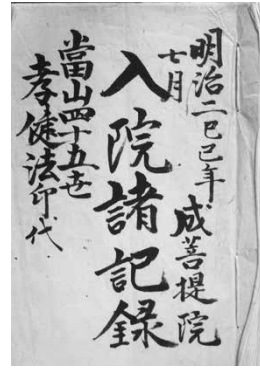 明治二己巳年
七月
成菩提院
入院諸記録
當山四十五世
孝健法印代